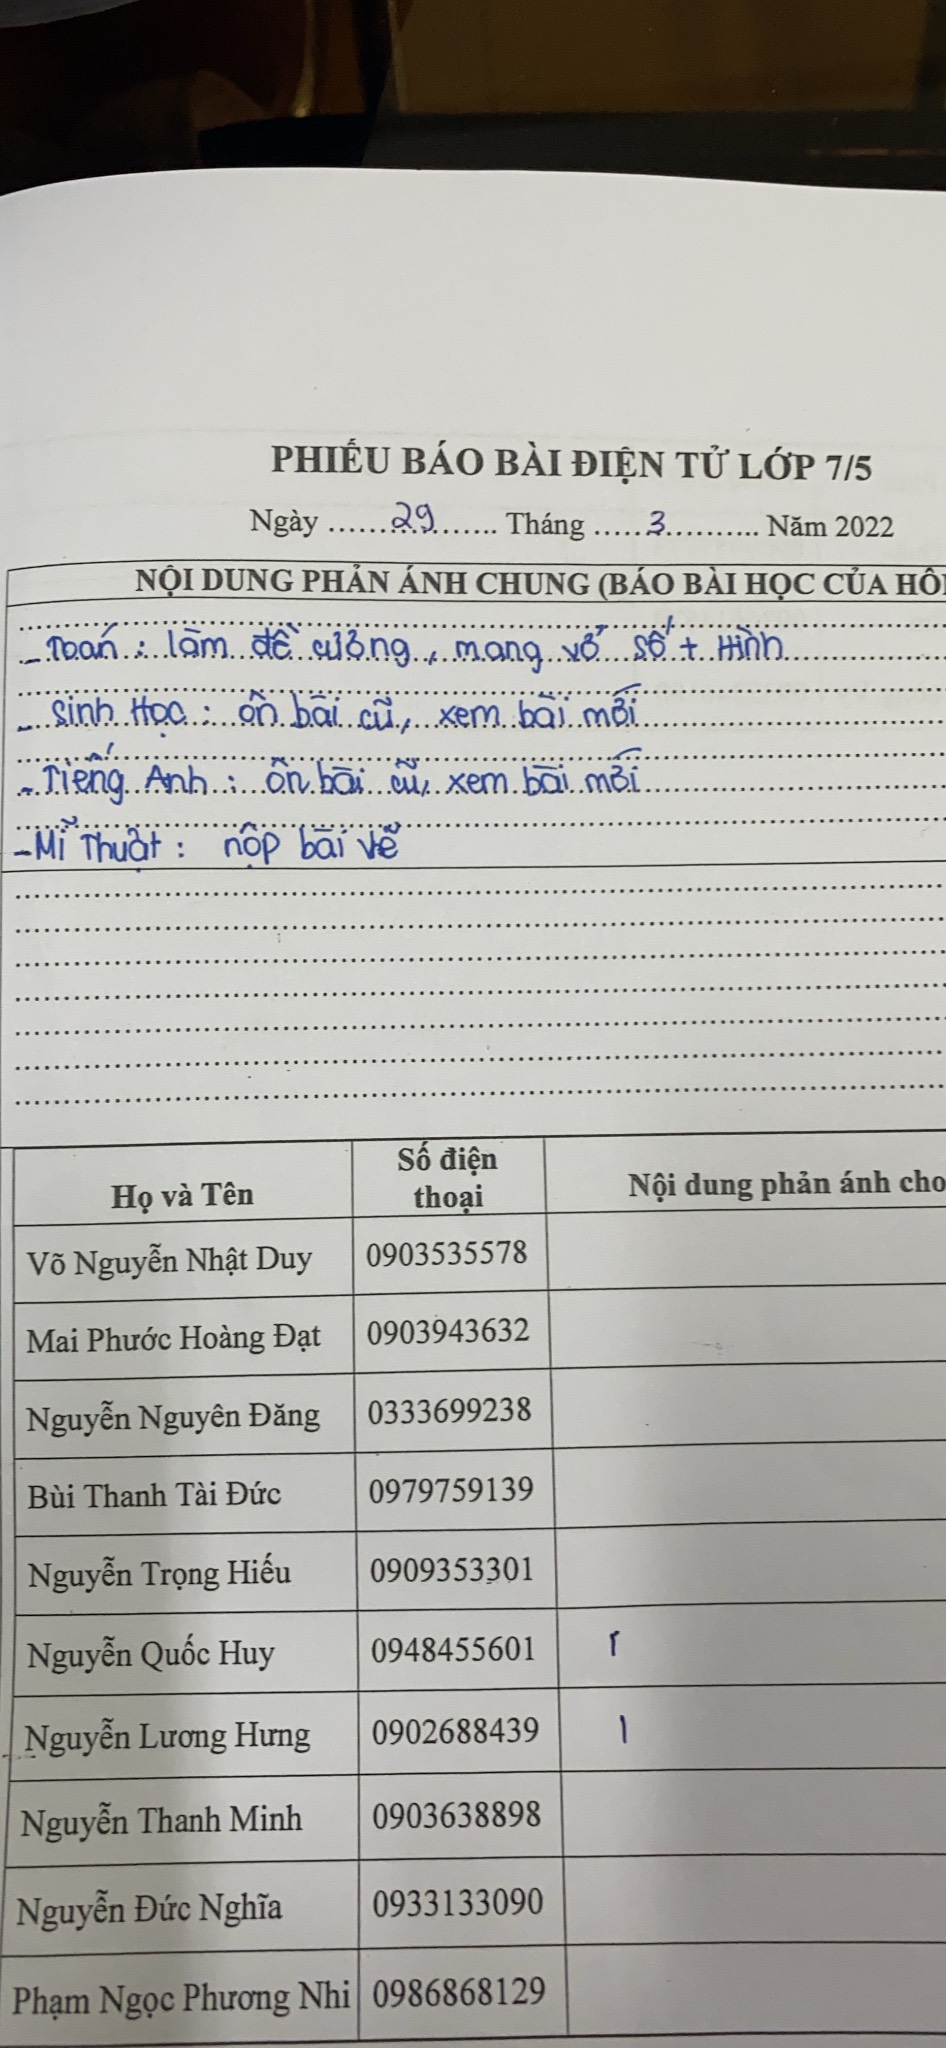 PHIẾU BÁO BÀI ĐIỆN TỬ LỚP 7/5
Ngày ......29....... Tháng .....3.......... Năm 2022
NỘI DUNG PHẢN ÁNH CHUNG (BÁO BÀI HỌC CỦA HÔ
- Toán : làm đề cương, mang vở số + Hình
- Sinh Học : ôn bài cũ, xem bài mới
- Tiếng Anh : ôn bài cũ, xem bài mới
- Mĩ Thuật : nộp bài vẽ
Họ và Tên Số điện thoại Nội dung phản ánh cho
Võ Nguyễn Nhật Duy 0903535578
Mai Phước Hoàng Đạt 0903943632
Nguyễn Nguyên Đăng 0333699238
Bùi Thanh Tài Đức 0979759139
Nguyễn Trọng Hiếu 0909353301
Nguyễn Quốc Huy 0948455601
Nguyễn Lương Hưng 0902688439
Nguyễn Thanh Minh 0903638898
Nguyễn Đức Nghĩa 0933133090
Phạm Ngọc Phương Nhi 0986868129